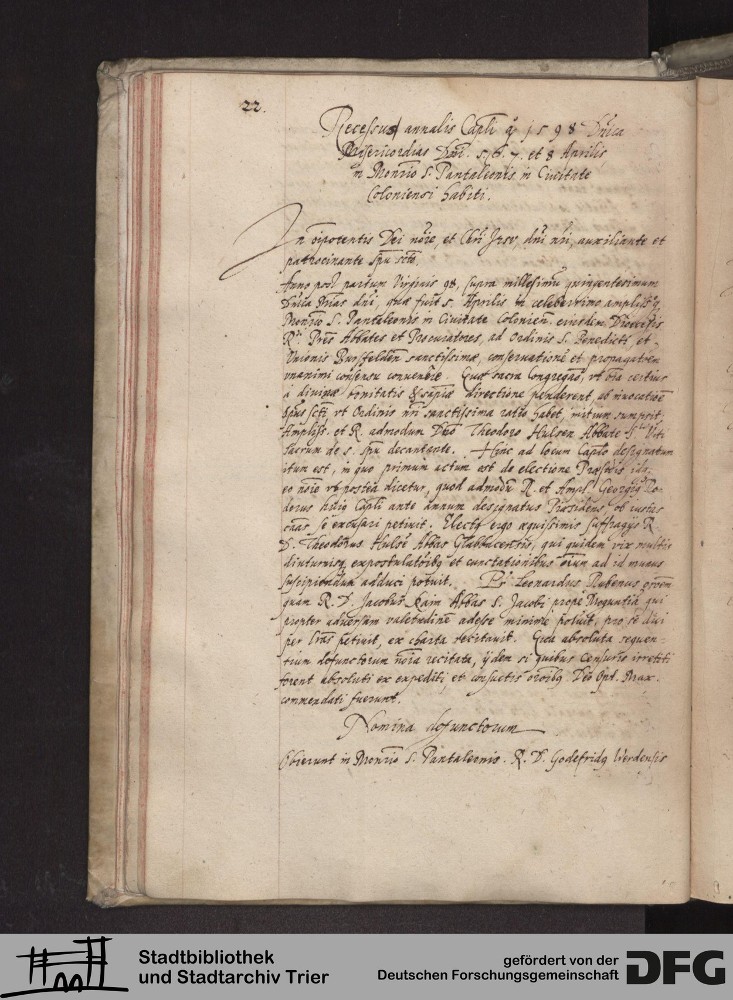 22.
Recessus annalis Capli ạ 1598 Dnica
Misericordias Dni. 5. 6. 7. et 8 Aprilis
in Monrio S. Pantaleonis in Civitate
Coloniensi habiti.
In oipotentis Dei noie, et Chri Jesv dni nri, auxiliante et
patrocinante spu scto.
Anno post partum Virginis 98. supra millesimu quingentesimum
Dnica Mias dni, quae fuit 5. Aprilis in celeberrimo amplissq
Monrio S. Pantaleonis in Civitate Colonien. eiusdem Dioecesis
Rdi Pres Abbates et Procuratores, ad Ordinis S. Benedicti, et
Unionis Bursfelden sanctissimae, conservatione et propagatioem
vnanimi consensu convenere. Quot sacra Congregao, vt oia certius
a divinae bonitatis & sapiae directione penderent, ab invocatioe
Spus scti vt Ordinis nri sanctissima ratio habet initium sumpsit.
Ampliss. et R. admodum Dno Theodoro Hulsen Abbate S. Viti
sacrum de s. spu decantante. Hinc ad locum Caplo designatum
itum est, in quo primum actum est de electione Praesidis
eo noie vt postea dicetur, quod admodu R. et Ampl. Georgiq
derus huiq Capli ante annum designatus Praesidens ob iustas
caas se excusari petivit. Electq ergo aequissimis suffragijs R.
D. Theodorus Hulse Abbas Gladbacensis, qui quidem vix multis
diuturnisq expostulatoibq et cunctationibus etium ad id munus
suscipiendum adduci potuit. Pr Leonardus Rubenus
quam R. D. Jacobus Abbas S. Jacobi prope Moguntia qui
propter adversam valetudine adesse minime potuit, pro se
per lras petivit, ex charta recitavit. Qua absoluta sequen-
tium defunctorum noia recitata, ijdem si quibus censuris irretiti
forent absoluti ex expediti, et consuetis oroibq Deo Opt. Max.
commendati fuerunt.
Nomina defunctorum
Obierunt in Monrio S. Pantaleonis. R. D. Godefridq Werdensis
Stadtbibliothek
und Stadtarchiv Trier
gefördert von der
Deutschen Forschungsgemeinschaft
DFG